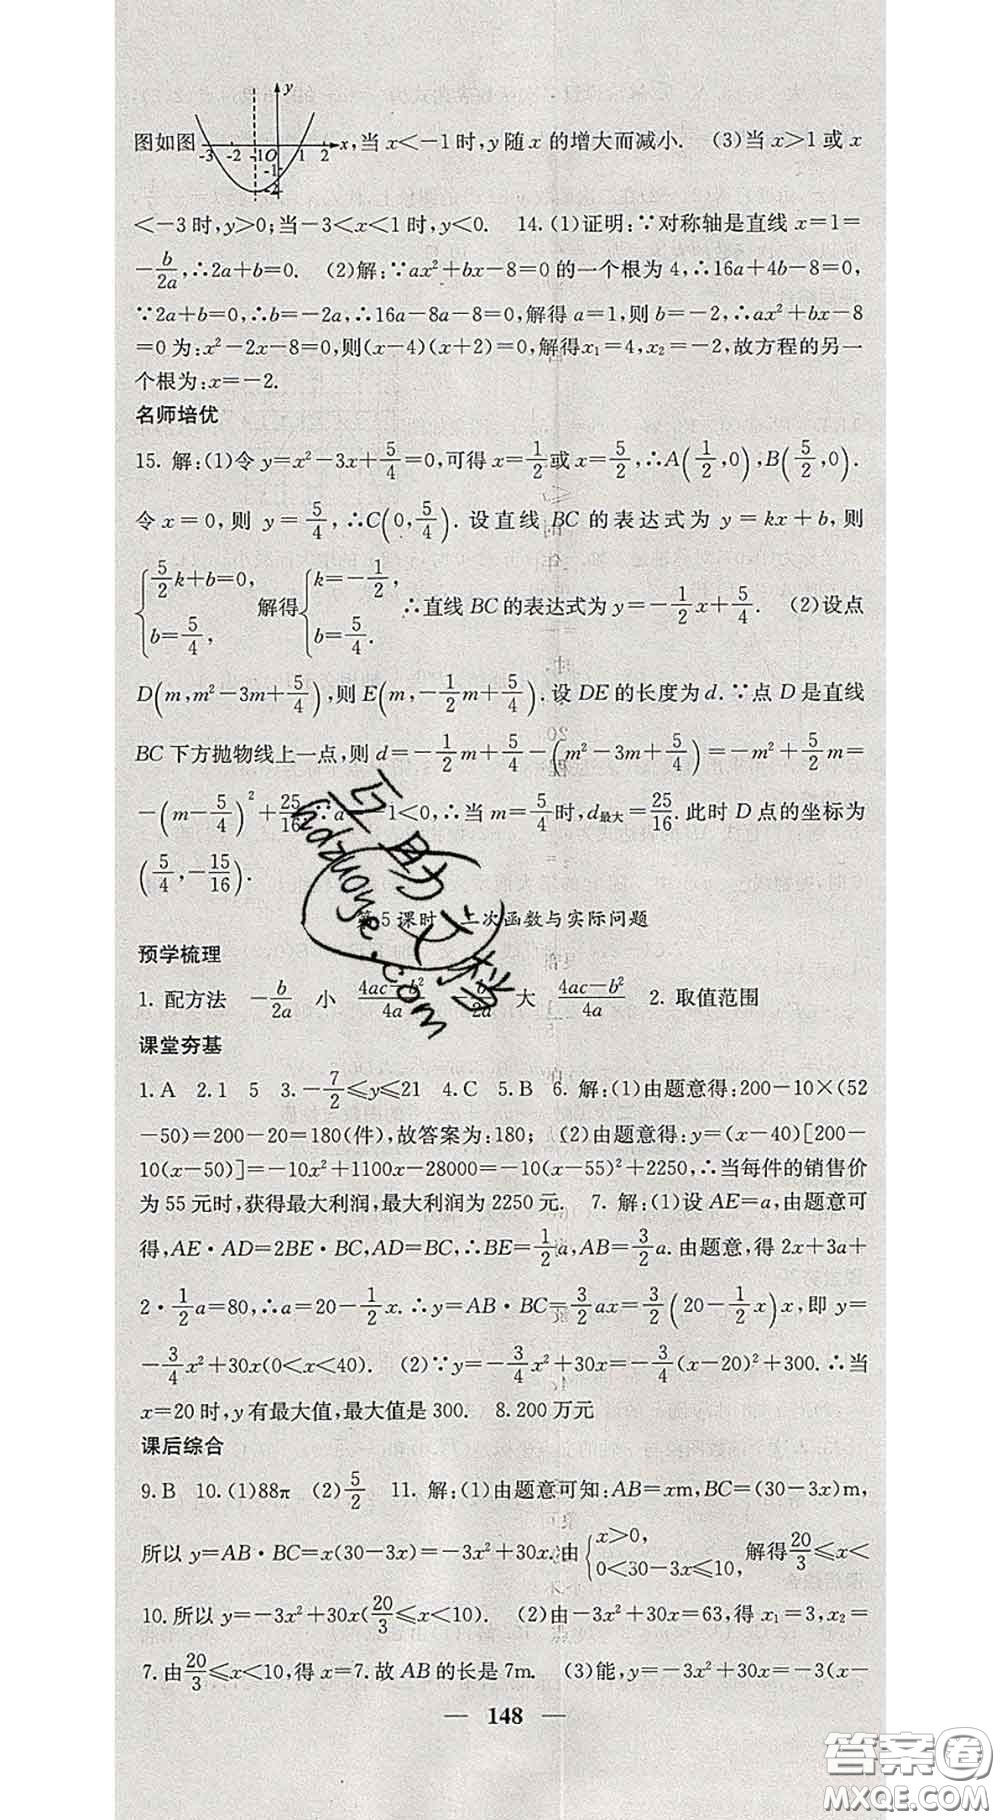 y
图如图 -3 -2 -1 O 1 2 x,当 x<-1 时,y 随 x 的增大而减小. (3)当 x>1 或 x
-1
-2
<-3 时,y>0;当-3<x<1 时,y<0. 14.(1)证明:∵对称轴是直线 x=1=
-b/2a,∴2a+b=0. (2)解:∵ax²+bx-8=0 的一个根为 4,∴16a+4b-8=0,
∵2a+b=0,∴b=-2a,∴16a-8a-8=0,解得 a=1,则 b=-2,∴ax²+bx-8
=0 为:x²-2x-8=0,则(x-4)(x+2)=0,解得x₁=4,x₂=-2,故方程的另一
个根为:x=-2.
名师培优
15. 解:(1)令 y=x²-3x+5/4=0,可得 x=1/2或 x=5/2,∴A(1/2,0),B(5/2,0).
令 x=0,则 y=5/4,∴C(0,5/4). 设直线 BC 的表达式为 y=kx+b,则
{5/2k+b=0, b=5/4, 解得{k=-1/2, b=5/4. ∴直线 BC 的表达式为 y=-1/2x+5/4. (2)设点
D(m,m²-3m+5/4),则 E(m,-1/2m+5/4). 设 DE 的长度为 d.∵点 D 是直线
BC 下方抛物线上一点,则 d=-1/2m+5/4-(m²-3m+5/4)=-m²+5/2m=
-(m-5/4)²+25/16,∵a=-1<0,∴当 m=5/4时,d最大=25/16. 此时 D 点的坐标为
(5/4,-15/16).
第 5 课时 二次函数与实际问题
预学梳理
1. 配方法 -b/2a 小 4ac-b²/4a -b/2a 大 4ac-b²/4a 2. 取值范围
课堂夯基
1.A 2.1 5 3.-7/2≤y≤21 4.C 5.B 6. 解:(1)由题意得:200-10×(52
-50)=200-20=180(件),故答案为:180; (2)由题意得:y=(x-40)[200-
10(x-50)]=-10x²+1100x-28000=-10(x-55)²+2250,∴当每件的销售价
为 55 元时,获得最大利润,最大利润为 2250 元. 7. 解:(1)设 AE=a,由题意可
得,AE·AD=2BE·BC,AD=BC,∴BE=1/2a,AB=3/2a. 由题意,得 2x+3a+
2·1/2a=80,∴a=20-1/2x.∴y=AB·BC=3/2ax=3/2(20-1/2x)x,即 y=
-3/4x²+30x(0<x<40). (2)∵y=-3/4x²+30x=-3/4(x-20)²+300.∴当
x=20 时,y 有最大值,最大值是 300. 8.200 万元
课后综合
9.B 10.(1)88π (2)5/2 11. 解:(1)由题意可知:AB=xm,BC=(30-3x)m,
所以 y=AB·BC=x(30-3x)=-3x²+30x.由{x>0, 0<30-3x≤10, 解得20/3≤x<
10.所以 y=-3x²+30x(20/3≤x<10). (2)由-3x²+30x=63,得 x₁=3,x₂=
7.由20/3≤x<10,得 x=7.故 AB 的长是 7m. (3)能,y=-3x²+30x=-3(x-
— 148 —
互助文档
hdzuoye.com
答案圈
MXQE.COM